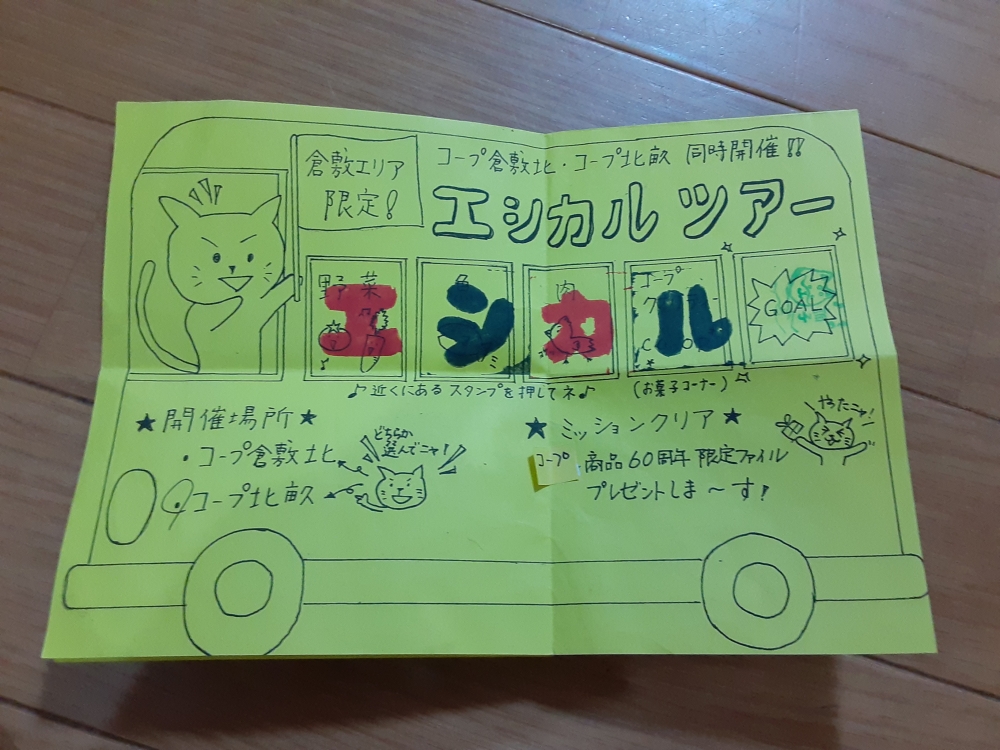 倉敷エリア
限定!
コープ倉敷北・コープ北畝 同時開催!!
エシカル ツアー
野菜
エ
シ
肉
カ
コープ
ル
GOAL
♪近くにあるスタンプを押してネ♪
(お菓子コーナー)
★開催場所★
・コープ倉敷北
コープ北畝
どちらか
選んでニャ!
★ミッションクリア★
コープ商品60周年 限定ファイル
プレゼントしま〜す!
やったニャ!